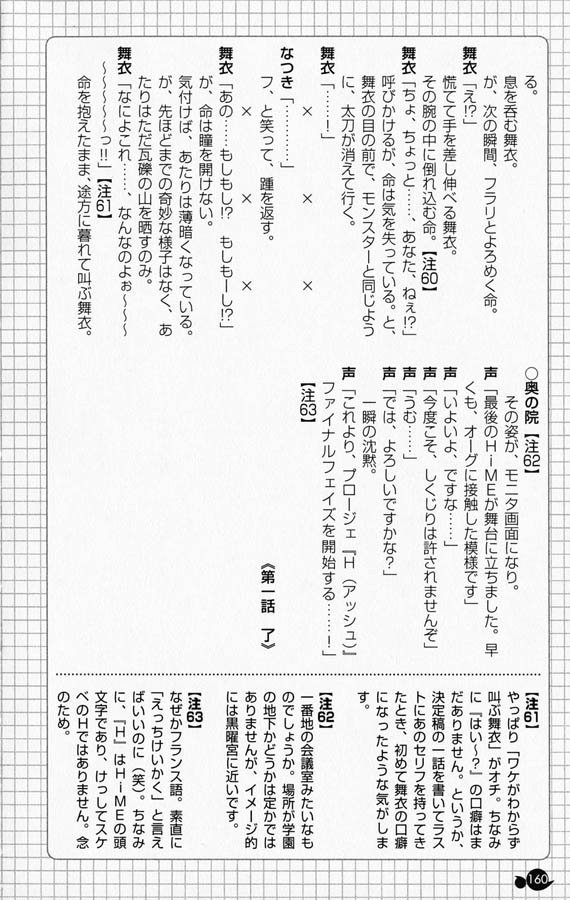 る。
息を呑む舞衣。
が、次の瞬間、フラリとよろめく命。
舞衣「え!?」
慌てて手を差し伸べる舞衣。
その腕の中に倒れ込む命。【注60】
舞衣「ちょ、ちょっと……、あなた、ねぇ!?」
呼びかけるが、命は気を失っている。と、
舞衣の目の前で、モンスターと同じよう
に、太刀が消えて行く。
舞衣「……！」
×　×　×
なつき「…………」
フ、と笑って、踵を返す。
×　×　×
舞衣「あの……もしもし!?　もしもーし!?」
が、命は瞳を開けない。
気付けば、あたりは薄暗くなっている。
が、先ほどまでの奇妙な様子はなく、あ
たりはただ瓦礫の山を晒すのみ。
舞衣「なによこれ……、なんなのよぉ～～～
～～～～～っ!!」【注61】
命を抱えたまま、途方に暮れて叫ぶ舞衣。
○奥の院【注62】
その姿が、モニタ画面になり。
声「最後のＨｉＭＥが舞台に立ちました。早
くも、オーグに接触した模様です」
声「いよいよ、ですな……」
声「今度こそ、しくじりは許されませんぞ」
声「うむ……」
声「では、よろしいですかな？」
一瞬の沈黙。
声「これより、プロージェ『Ｈ（アッシュ）』
ファイナルフェイズを開始する……！」
【注63】
《第一話　了》
【注61】
やっぱり「ワケがわからず
叫ぶ舞衣」がオチ。ちなみ
に『はい～？』の口癖はま
だありません。というか、
決定稿の一話を書いてラス
トにあのセリフを持ってき
たとき、初めて舞衣の口癖
になったような気がしま
す。
【注62】
一番地の会議室みたいなも
のでしょうか。場所が学園
の地下かどうかは定かでは
ありませんが、イメージ的
には黒曜宮に近いです。
【注63】
なぜかフランス語。素直に
「えっちけいかく」と言え
ばいいのに（笑）。ちなみ
に、『Ｈ』はＨｉＭＥの頭
文字であり、けっしてスケ
ベのＨではありません。念
のため。
160